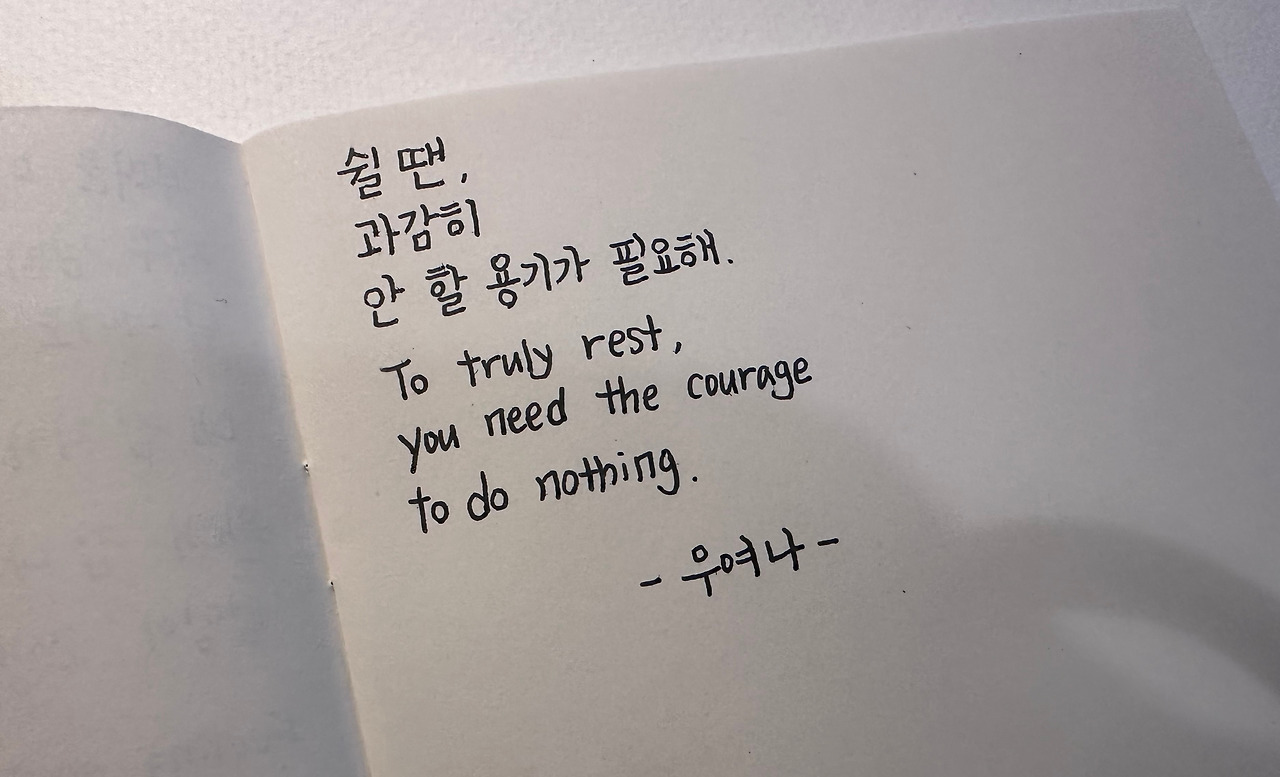 쉴 땐,
과감히
안 할 용기가 필요해.
To truly rest,
you need the courage
to do nothing.
- 우여나 -